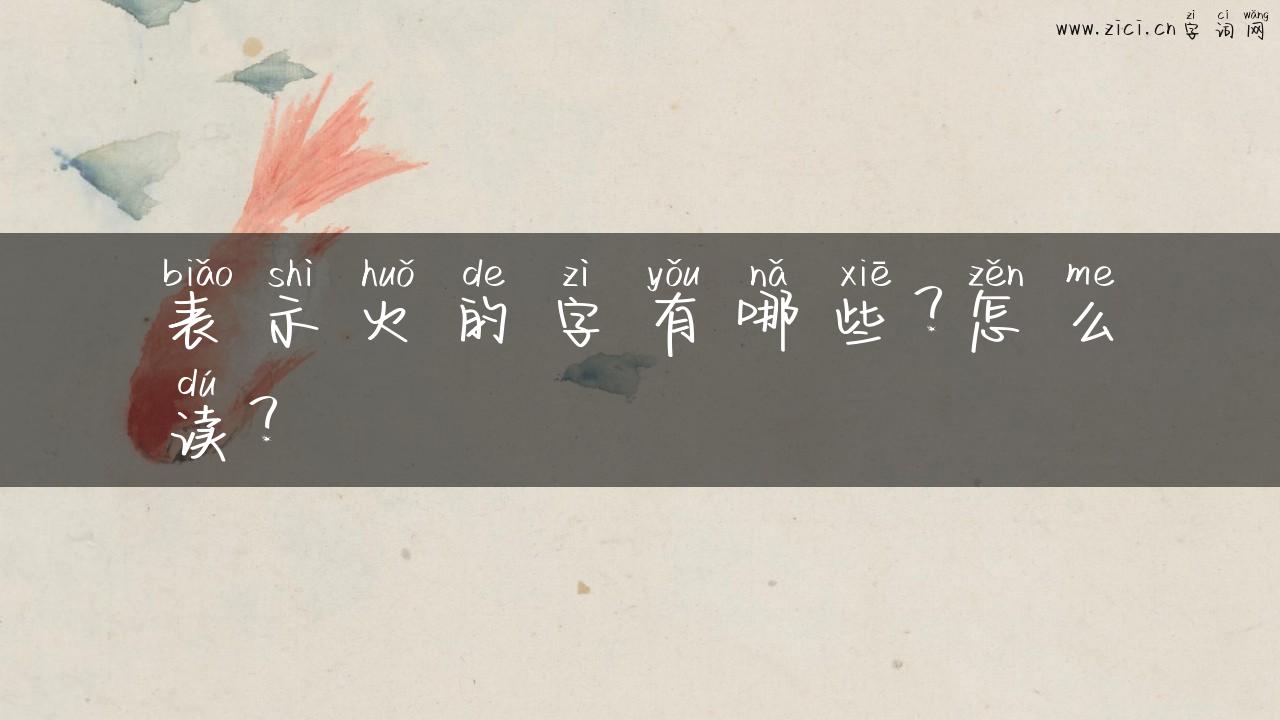 zì cí wǎng
www.zici.cn 字 词 网
biǎo shì huǒ de zì yǒu nǎ xiē zěn me
表 示 火 的 字 有 哪 些？怎 么
dú
读？